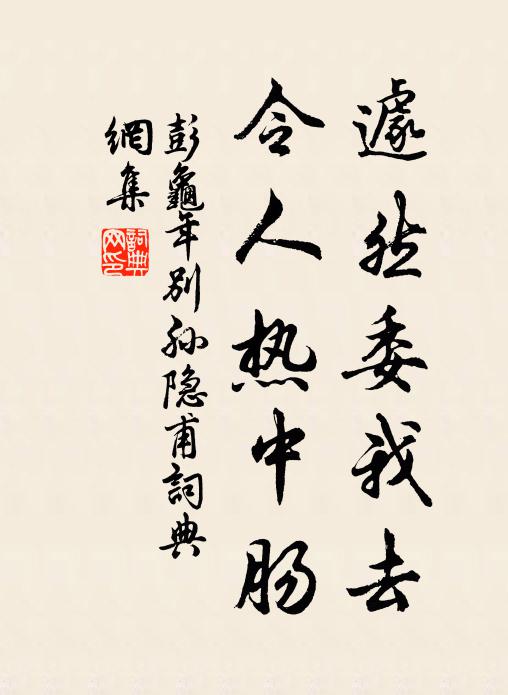 遽然委我去
令人热中肠
彭龜年别孙隐甫詞典
網集
詞典
网印